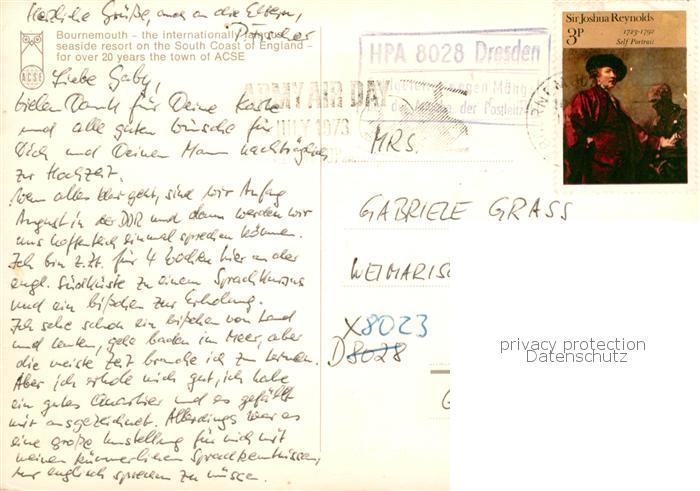 Herzliche Grüße, auch an die Eltern,
Bournemouth - the internationally
seaside resort on the South Coast of England -
for over 20 years the town of ACSE
ACSE
Liebe Gaby!
Vielen Dank für Deine Karte
und alle guten Wünsche für
Dich und Deinen Mann nachträglich
zur Hochzeit.
Wenn alles klar geht, sind wir Anfang
August in der DDR und dann werden wir
uns hoffentlich einmal sprechen können.
Ich bin z.Zt. für 4 Wochen hier an der
engl. Südküste zu einem Sprachkursus
und ein bißchen zur Erholung.
Ich sehe schon ein bißchen von Land
und Leuten, gehe baden im Meer, aber
die meiste Zeit brauche ich zum Lernen.
Aber ich erhole mich gut, ich habe
ein gutes Quartier und es gefällt
mir ausgezeichnet. Allerdings war es
eine große Umstellung für mich mit
meinen kümmerlichen Sprachkenntnissen,
nur englisch sprechen zu müssen.
HPA 8028 Dresden
wegen Mäng
der Postleitz
ARMY AIR DAY
JULY 1973
Sir Joshua Reynolds
3P
1723-1792
Self Portrait
MRS.
GABRIELE GRASS
WEIMARISC
X8023
D8028
privacy protection
Datenschutz